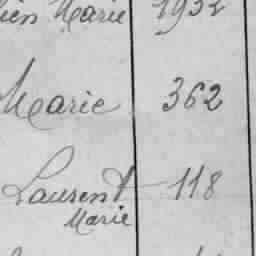 Marie 1932
Marie 362
Laurent 118
Marie